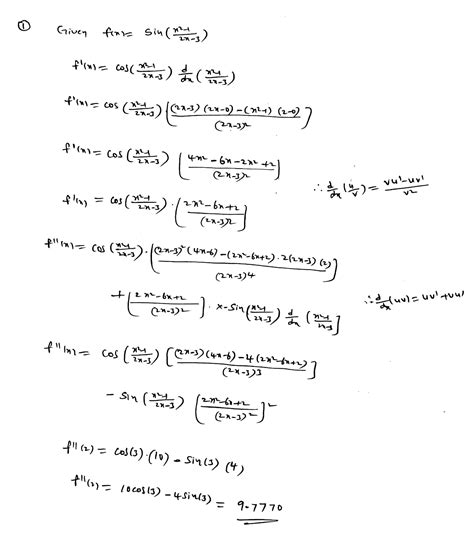 ① Given f(x) = sin(x²-1/2x-3)
f'(x) = cos(x²-1/2x-3) d/dx (x²-1/2x-3)
f'(x) = cos(x²-1/2x-3) [(2x-3)(2x-0)-(x²-1)(2-0)/(2x-3)²]
f'(x) = cos(x²-1/2x-3) [4x²-6x-2x²+2/(2x-3)²]
∴ d/dx (u/v) = vu'-uv'/v²
f'(x) = cos(x²-1/2x-3) · [2x²-6x+2/(2x-3)²]
f''(x) = cos(x²-1/2x-3) · [(2x-3)²(4x-6)-(2x²-6x+2)·2(2x-3)(2)/(2x-3)4]
+ [2x²-6x+2/(2x-3)²] · x-sin(x²-1/2x-3) d/dx (x²-1/2x-3]
∴ d/dx (uv) = uv' + vu'
f''(x) = cos(x²-1/2x-3) [(2x-3)(4x-6)-4(2x²-6x+2)/(2x-3)3]
- sin(x²-1/2x-3) [2x²-6x+2/(2x-3)²]²
f''(2) = cos(3)·(10) - sin(3)(4)
f''(2) = 10cos(3) - 4sin(3) = 9.7770